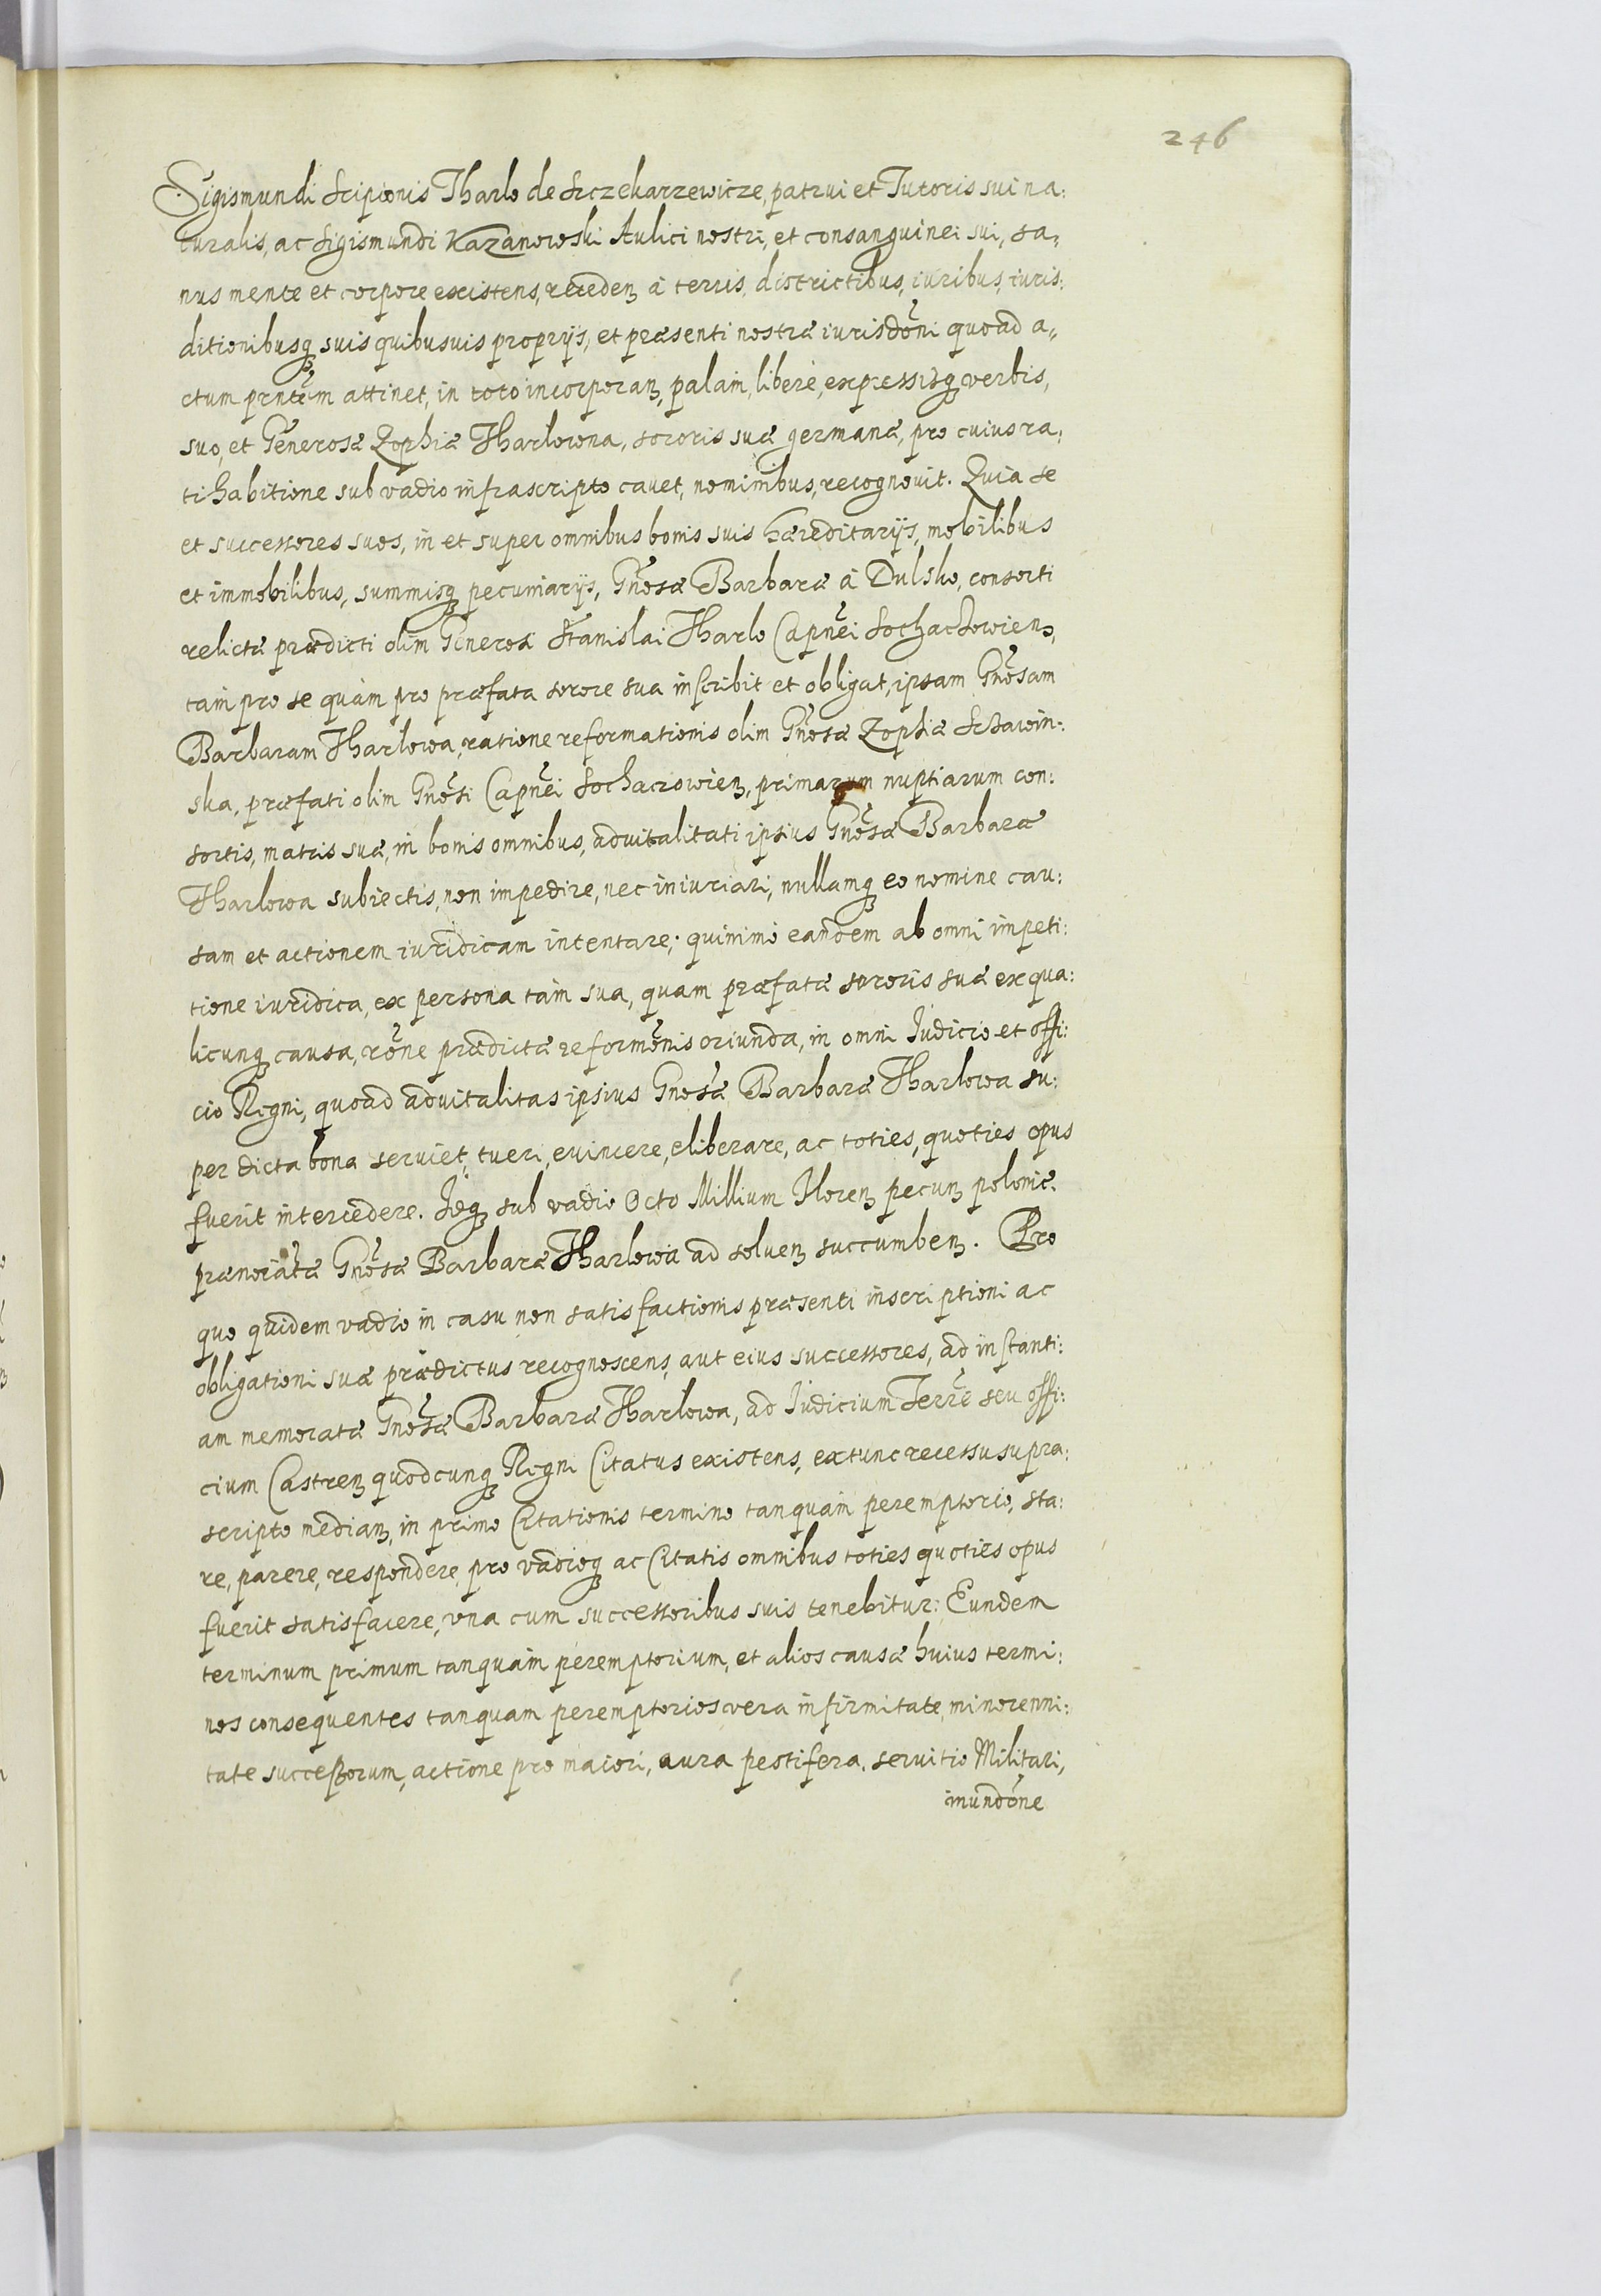 246
Sigismundi Scipionis Tharlo de Sczekarzewicze, patrui et Tutoris sui na:
turalis, ac Sigismundi Kazanowski Aulici nostri, et consanguinei sui, sa,
nus mente et corpore existens, recedenȝ à terris, districtibus, iuribus, iuris:
ditionibusqȝ suis quibusuis proprijs, et præsenti nostræ iurisdõni quoad a,
ctum prntẽm attinet, in toto incorporanȝ, palam, liberè, expressisqȝ verbis,
suo, et Generosæ Zophiæ Tharlowna, sororis suæ germanæ, pro cuius ra,
tihabitione sub vadio infrascripto cauet, nominibus, recognouit. Quia se
et successores suos, in et super omnibus bonis suis hæreditarijs, mobilibus
et immobilibus, summisqȝ pecuniarijs, Gnõsæ Barbaræ à Dulsko, consorti
relictæ prædicti olim Generosi Stanislai Tharlo Capnẽi Sochaczowienȝ,
tam pro se quàm pro præfata sorore sua inscribit et obligat, ipsam Gnõsam
Barbaram Tharlowa, ratione reformationis olim Gnõsæ Zophiæ Sczawin:
ska, præfati olim Gnõsi Capnẽi Sochaczowienȝ, primarum nuptiarum con:
sortis, matris suæ, in bonis omnibus, aduitalitati ipsius Gnõsæ Barbaræ
Tharlowa subiectis, non impedire, nec iniuriari, nullamqȝ eo nomine cau:
sam et actionem iuridicam intentare; quinimò eandem ab omni impeti:
tione iuridica, ex persona tàm sua, quam præfatæ sororis suæ ex qua:
licunqȝ causa, rõne prædictæ reformõnis oriunda, in omni Iudicio et offi:
cio Regni, quoad aduitalitas ipsius Gnõsæ Barbaræ Tharlowa su:
per dicta bona seruiet, tueri, euincere, eliberare, ac toties, quoties opus
fuerit intercedere. Idqȝ sub vadio Octo Millium Florenȝ pecunȝ polonic.
prænoiatæ Gnõsæ Barbaræ Tharlowa ad soluenȝ succumbenȝ. Pro
quo quidem vadio in casu non satisfactionis præsenti inscriptioni ac
obligationi suæ prædictus recognoscens, aut eius successores, ad instanti:
am memoratæ Gnõsæ Barbaræ Tharlowa, ad Iudicium Terrẽ seu offi:
cium Castrenȝ quodcunqȝ Regni Citatus existens, extunc recessu supra:
scripto medianȝ, in primo Citationis termino tanquam peremptorio, sta:
re, parere, respondere, pro vadioqȝ ac Citatis omnibus toties quoties opus
fuerit satisfacere, vna cum successoribus suis tenebitur: Eundem
terminum primum tanquam peremptorium, et alios causæ huius termi:
nos consequentes tanquam peremptorios vera infirmitate, minorenni:
tate successorum, actione pro maiori, aura pestifera, seruitio Militari,
inundõne